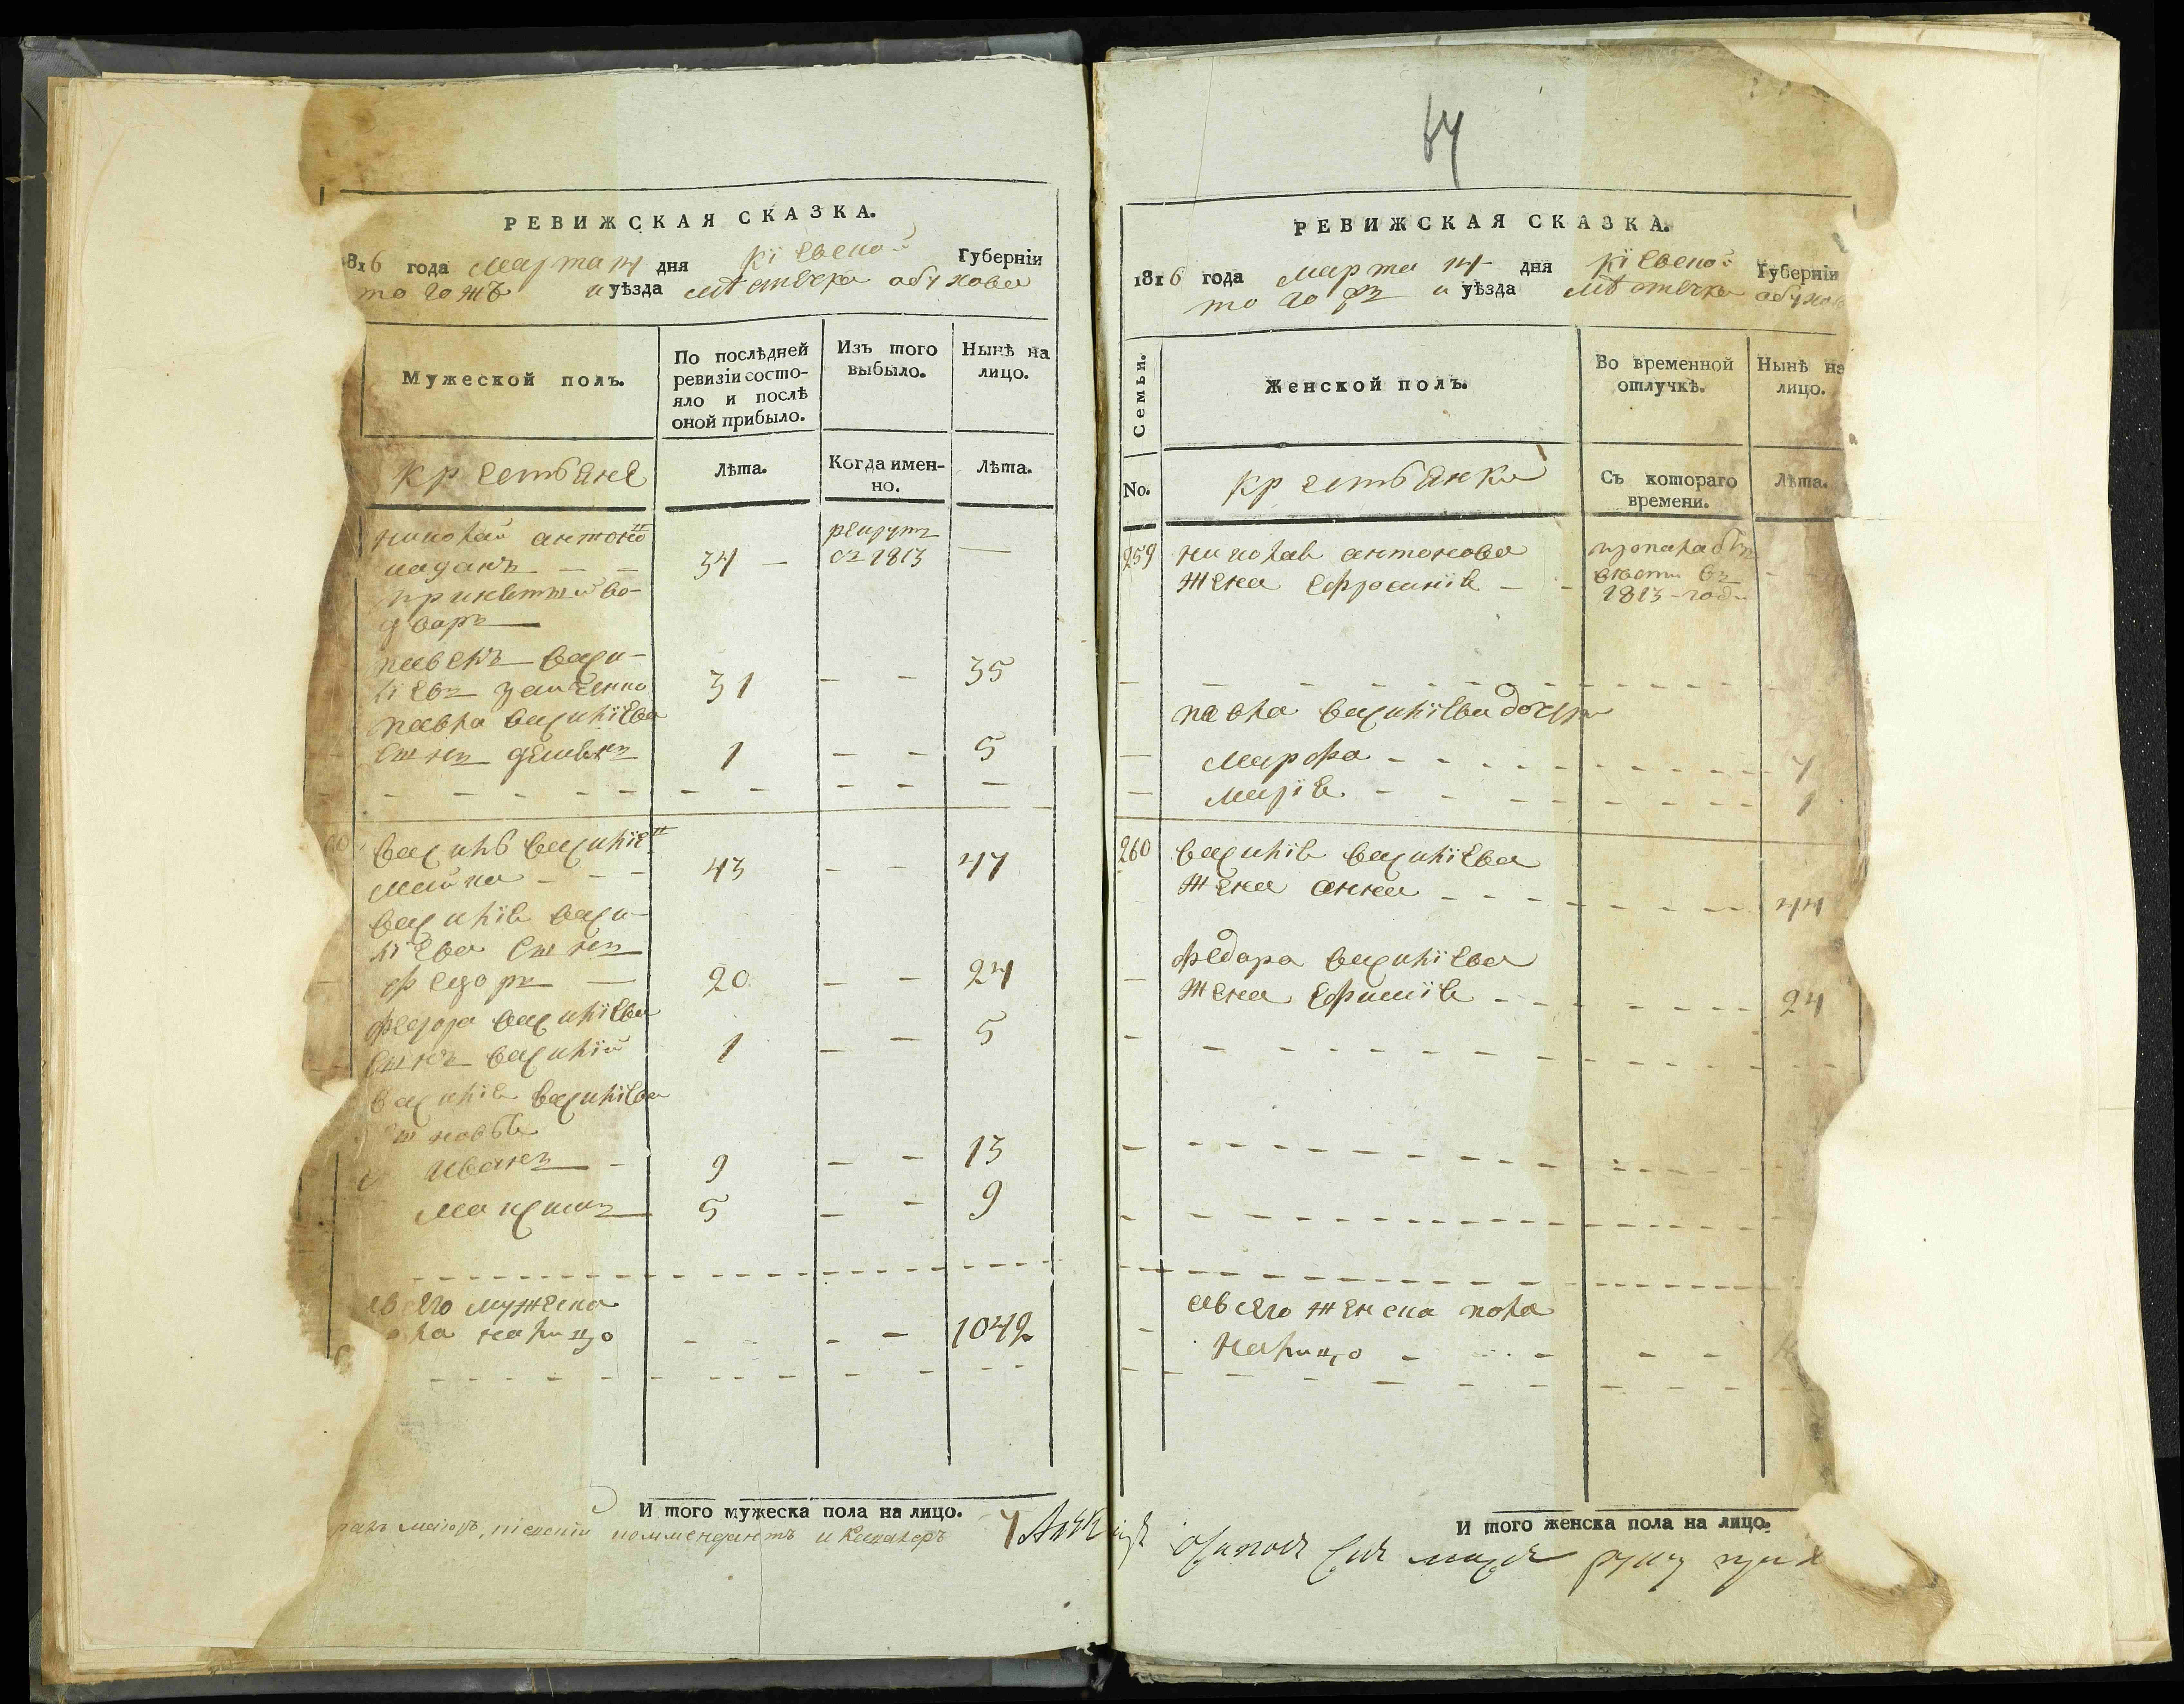 РЕВИЖСКАЯ СКАЗКА.
1816 года Марта 14 дня Кіевской Губерніи
того жъ и уѣзда мѣстечка обухова
Мужеской полъ.
По послѣдней ревизіи состо-
яло и послѣ
оной прибыло.
Изъ того
выбыло.
Нынѣ на
лицо.
крестьяне
Лѣта.
Когда имен-
но.
Лѣта.
николай антоно
рекрутъ
34 — съ 1813 —
павелъ васи-
31 - - 35
павла василіева
сынъ демьянъ 1 - - 5
василь василіе
43 - - 47
василія васи-
ліева сынъ
федоръ — 20 - - 24
федора василіева
сынъ василій 1 - - 5
василія василіева
сыновья
иванъ - 9 - - 13
максимъ 5 - - 9
всего мужеска
пола налицо - - - 1042
И того мужеска пола на лицо.
маіоръ, кіевскій коммендантъ и Кавалеръ
64
РЕВИЖСКАЯ СКАЗКА.
1816 года марта 14 дня кіевской Губерніи
того жъ и уѣзда мѣстечка обухов
Семьи.
Женской полъ.
Во временной
отлучкѣ.
Нынѣ на
лицо.
No.
крестьянки
Съ котораго
времени.
Лѣта.
259 николая антонова
жена ефросинія - -
въ
1813 - году
павла василіева дочери
Марфа - 7
Марія - 1
260 василія василіева
жена анна - 44
федора василіева
жена ефимія - 24
всего женска пола
налицо - - -
И того женска пола на лицо.
руку